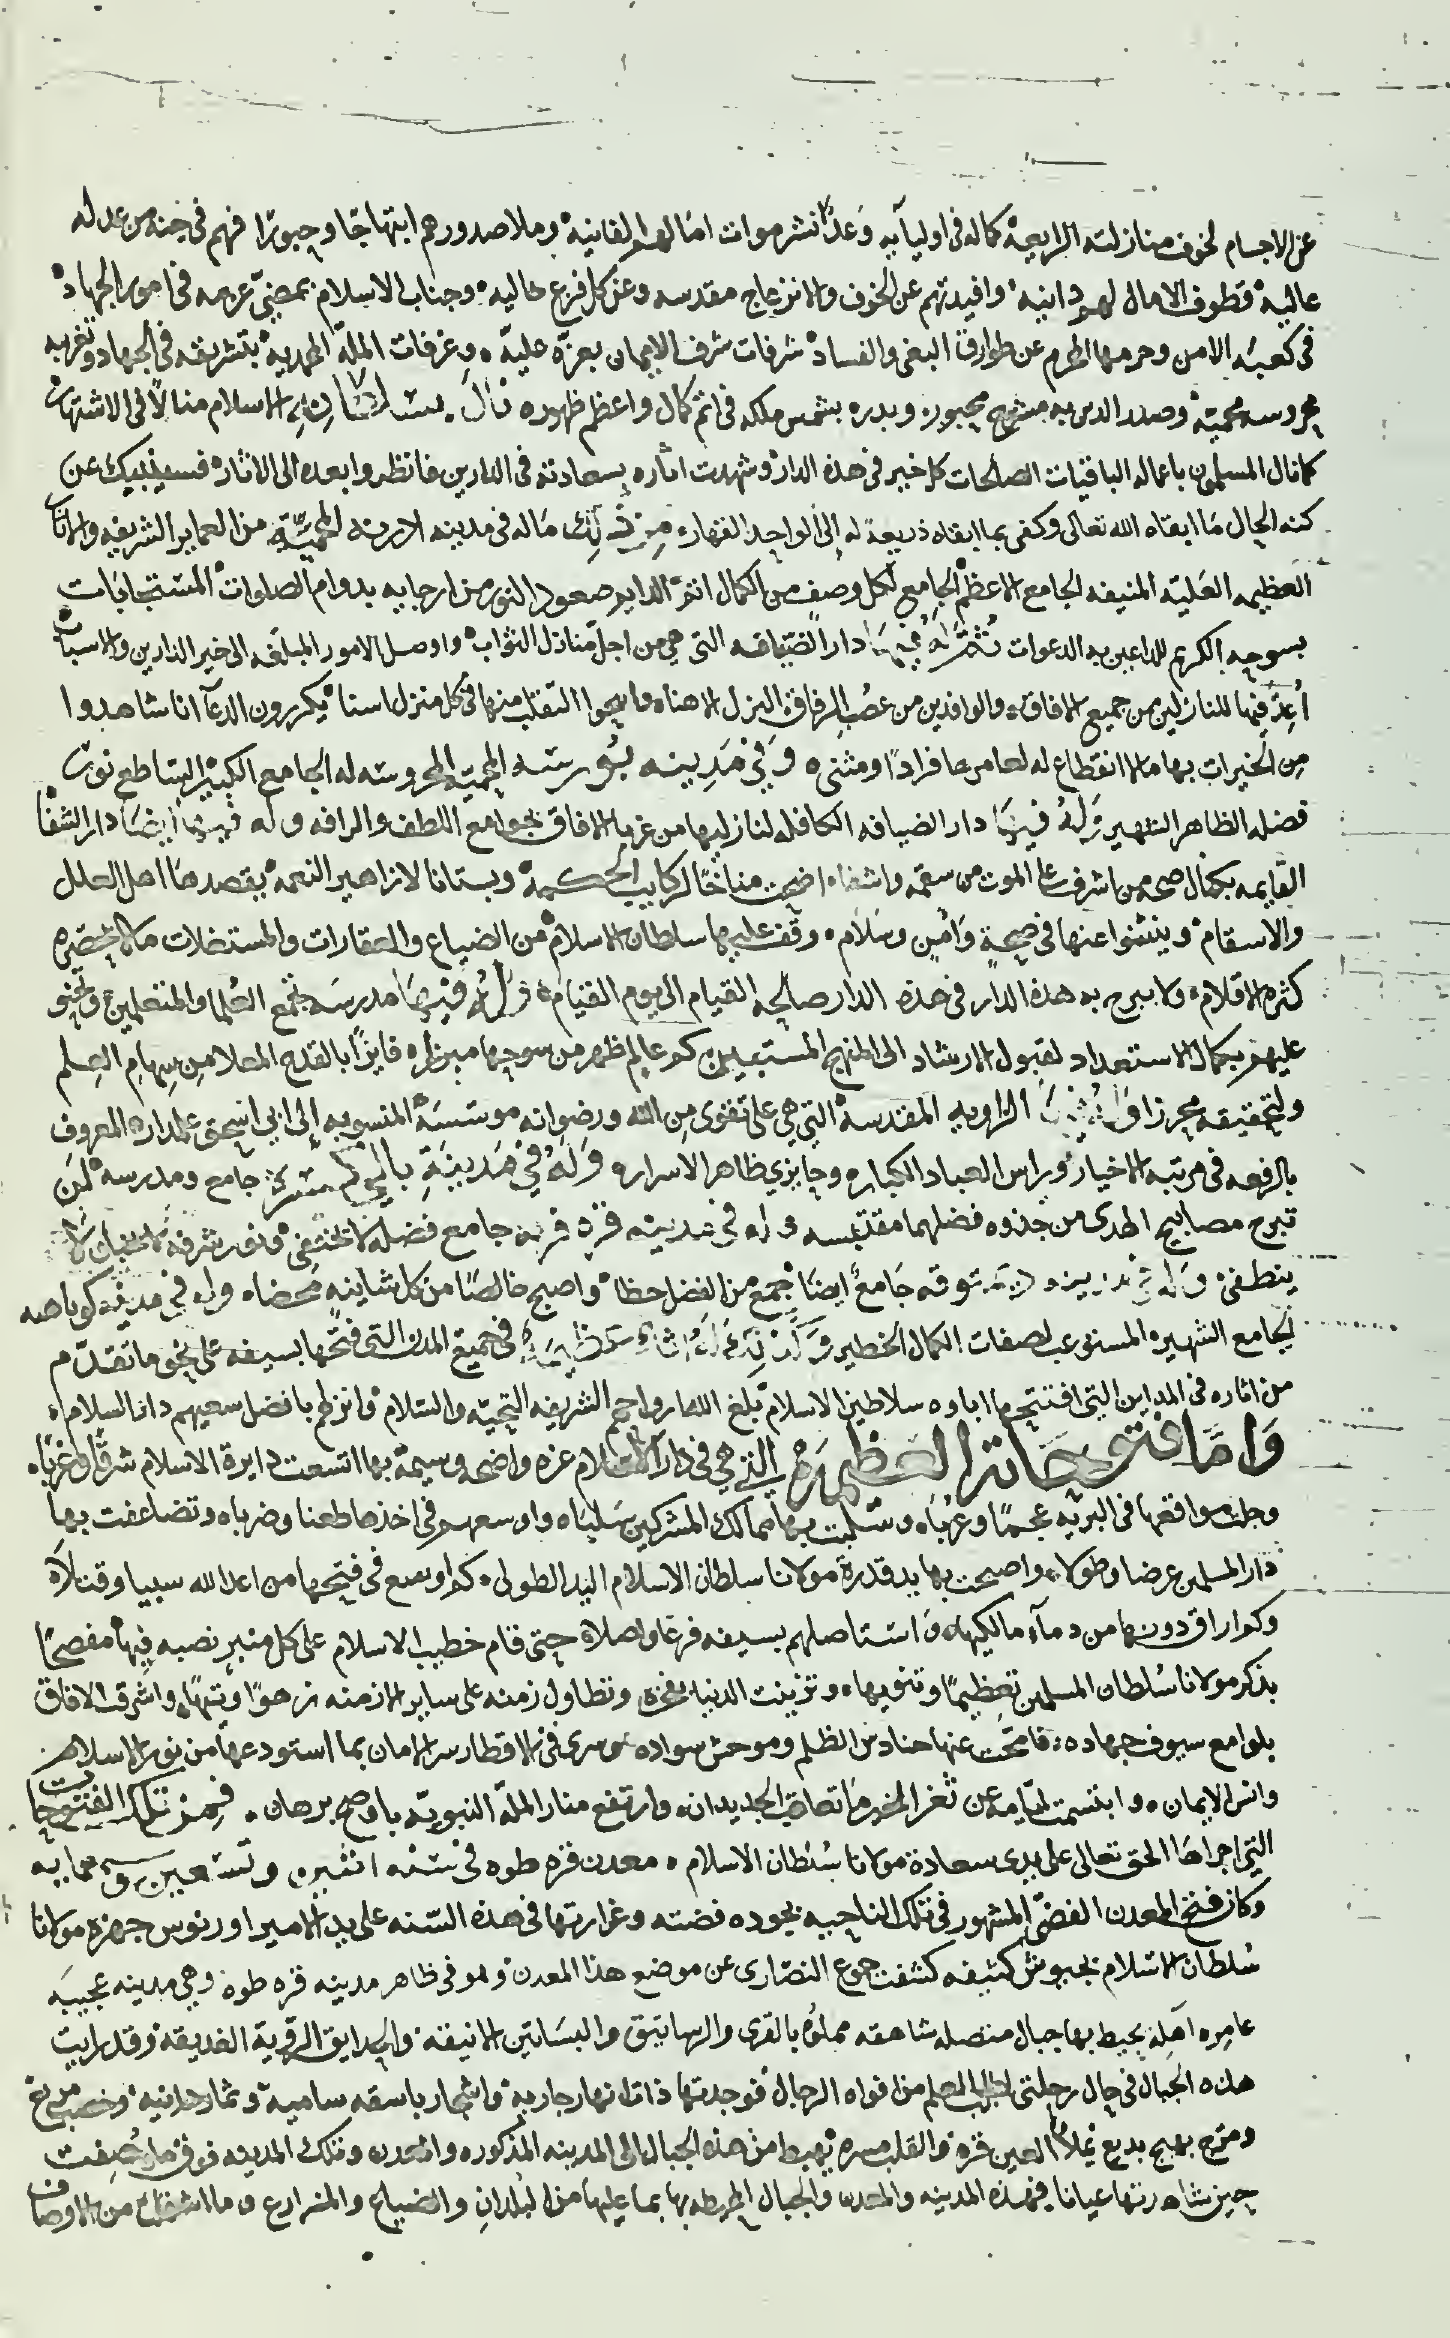 عن الاجسام لخوف منازلته الرايعة كماله في اوليآيه وعدلاً نشر موات امالهم الفانية وملا صدورهم ابتهاجا وحبورا فهم في جنة من عدله
عالية قطوف الامال لهم دانية وافيدتهم عن الخوف والانزعاج مقدسه وعن كل فزع خاليه وجناب الاسلام بمضيّ عزمه في امور الجهاد
في كعبة الامن وحرمها المحرم عن طوارق البغي والفساد شرفات شرف الايمان بعزّه عليّه وغرفات الملّة المحمدية بتشريفه في الجهاد وتغريبه
محروسه محميّة وصدر الدين به منشرح محبور وبدره بشمس ملكه في اتم كمال واعظم ظهوره نال سلطان الاسلام منالاً في الاشتهار
كما نال المسلمون باعماله الباقيات الصالحات كل خير في هذه الدار وشهدت اثاره بسعادته في الدارين فانظروا بعده الى الاثار فسينبيك عن
كنه الحال ما ابقاه الله تعالى وكفى بما ابقاه ذريعة له إلى الواحد القهار من ذلك ماله في مدينه ادرنه المحميّة من العماير الشريفه والاثار
العظيمه العليّه المنيفه الجامع الاعظم الجامع لكل وصف من الكمال اتم الدايم صعود النور من ارجايه بدوام الصلوات المستجابات
بسوحه الكريم للداعين به الدعوات ثم له فيها دار الضيافه التي هي من اجل منازل الثواب واوصل الامور المبلغه الى خير الدارين والاسباب
أعدّ فيها للنازلين من جميع الافاق والوافدين من عصب الرفاق النزل الاهناه وابيحوا التقلب منها في كل منزل اسنا يكررون الدعآ انا شاهدوا
من الخيرات بها مالا انقطاع له لعامرها فرادًا ومثنى وفي مدينه بورسه المحميّة المحروسه له الجامع الكبير الساطع نور
فضله الظاهر الشهير وله فيها دار الضيافه الكافله لنازليها من غربا الافاق بجوامع اللطف والرافه وله فيها أيضا دار الشفا
القايمه بكمال صحه من اشرف على الموت من سقمه واشفاه اضحت مناخًا لركايب الحكمة وبستانا لازاهير النعمة يقصدها اهل العلل
والاسقام وينثنوا عنها في صحة وأمن وسلام وقف عليها سلطان الاسلام من الضياع والعقارات والمستغلات مالا تحصره
كثرة الاقلام ولا يبرح به هذه الدار في هذه الدار صالحه القيام الى يوم القيام وله فيها مدرسه تجمع العلما والمتعلمين وتحنو
عليهم بكمال الاستعداد لقبول الارشاد الى المنهج المستبين كم عالم ظهر من سوحها مبرزا فايزًا بالقدح المعلا من سهام العلم
ولتحقيقه محرزا الزاويه المقدسة التي هي على تقوى من الله ورضوانه موسسة المنسوبه إلى ابي اسحق علمدار المعروف
بالرفعه في مرتبه الاخيار وراس العباد الكبار وحايزي ظاهر الاسرار وله في مدينة جامع ومدرسه لمن
تبرح مصابيح الهدى من جذوه فضلهما مقتبسه وله في مدينه قره فريه جامع فضله لا تختفي ونور شرفه
ينطفئ وله في مدينه ديمه توقه جامع ايضا جمع من الفضل حظا واصبح خالصا من كل شاينه محضا وله في مدينه كوتاهيه
الجامع الشهير المستوعب لصفات الكمال الخطير وكذلك له اثار عظيمة في جميع المدن التي فتحها بسيفه على نحو ما تقدّم
من اثاره في المداين التي افتتحها اباوه سلاطين الاسلام بلغ الله ارواحهم الشريفه التحيّه والسّلام وانزلهم بافضل سعيهم دار السلام
واما فتوحاته العظيمه التي هي في دار الاسلام غره واضحه وسيمة بها اتسعت دايرة الاسلام شرقًا وغربًا
وجلت مواقعها في البريه عجمًا وعربًا وسلبت بها ممالك المشركين سلبًا واوسعهم في اخذها طعنا وضربا وتضاعفت بها
دار المسلمين عرضا وطولا واصبحت بها يد قدرة مولانا سلطان الاسلام اليد الطولى كم اوسع في فتحها من اعدا الله سبيا وقتلا
وكم اراق دونها من دمآء مالكيها واستاصلهم بسيفه فرعا واصلا حتى قام خطيب الاسلام على كل منبر نصبه فيها مفصحًا
بذكر مولانا سلطان المسلمين تعظيمًا وتنويها وتزينت الدنيا بفخره وتطاول زمنه على ساير الازمنه زهوًا وتيهًا واشرقت الافاق
بلوامع سيوف جهاده فامحت عنها حنادس الظلم وموحش سواده وسرى في الاقطار سر الامان بما استودعها من نور الاسلام
وانس الايمان وابتسمت ليّامه عن ثغر المفخر ما تعاقب الجديدان وارتفع منار الملّه النبويّه باوضح برهان فمن تلك الفتوحات
التي اجراها الحق تعالى على يدى سعادة مولانا سلطان الاسلام معدن قره طوه في سنه اثنين وتسعين وسبعمايه
وكان فتح المعدن الفضي المشهور في تلك الناحيه بجوده فضته وغزارتها في هذه السّنه على يد الامير اورنوس جهزه مولانا
سلطان الاسلام بجيوش كثيفه كشفت جموع النصارى عن موضع هذا المعدن وهو في ظاهر مدينه قره طوه وهي مدينه عجيبه
عامره آهلة يحيط بها جبال متصله شاهقه مملوه بالقرى والرساتيق والبساتين الانيقه والحدايق الرقية الغديقه وقد رايت
هذه الجبال في حال رحلتي لطلب العلم من افواه الرجال فوجدتها ذات انهار جاريه واشجار باسقه ساميه وثمار دانيه وخصب مريع
ومرج بهيج بديع يملا العين قره والقلب مسره يهبط من هذه الجبال الى المدينه المذكوره والمعدن وتلك المدينه فوق ما وصفت
حين شاهدتها عيانا فهذه المدينه والمعدن والجبال المحيطه بها بما عليها من البلدان والضياع والمزارع وما اشتملت من الاوصاف